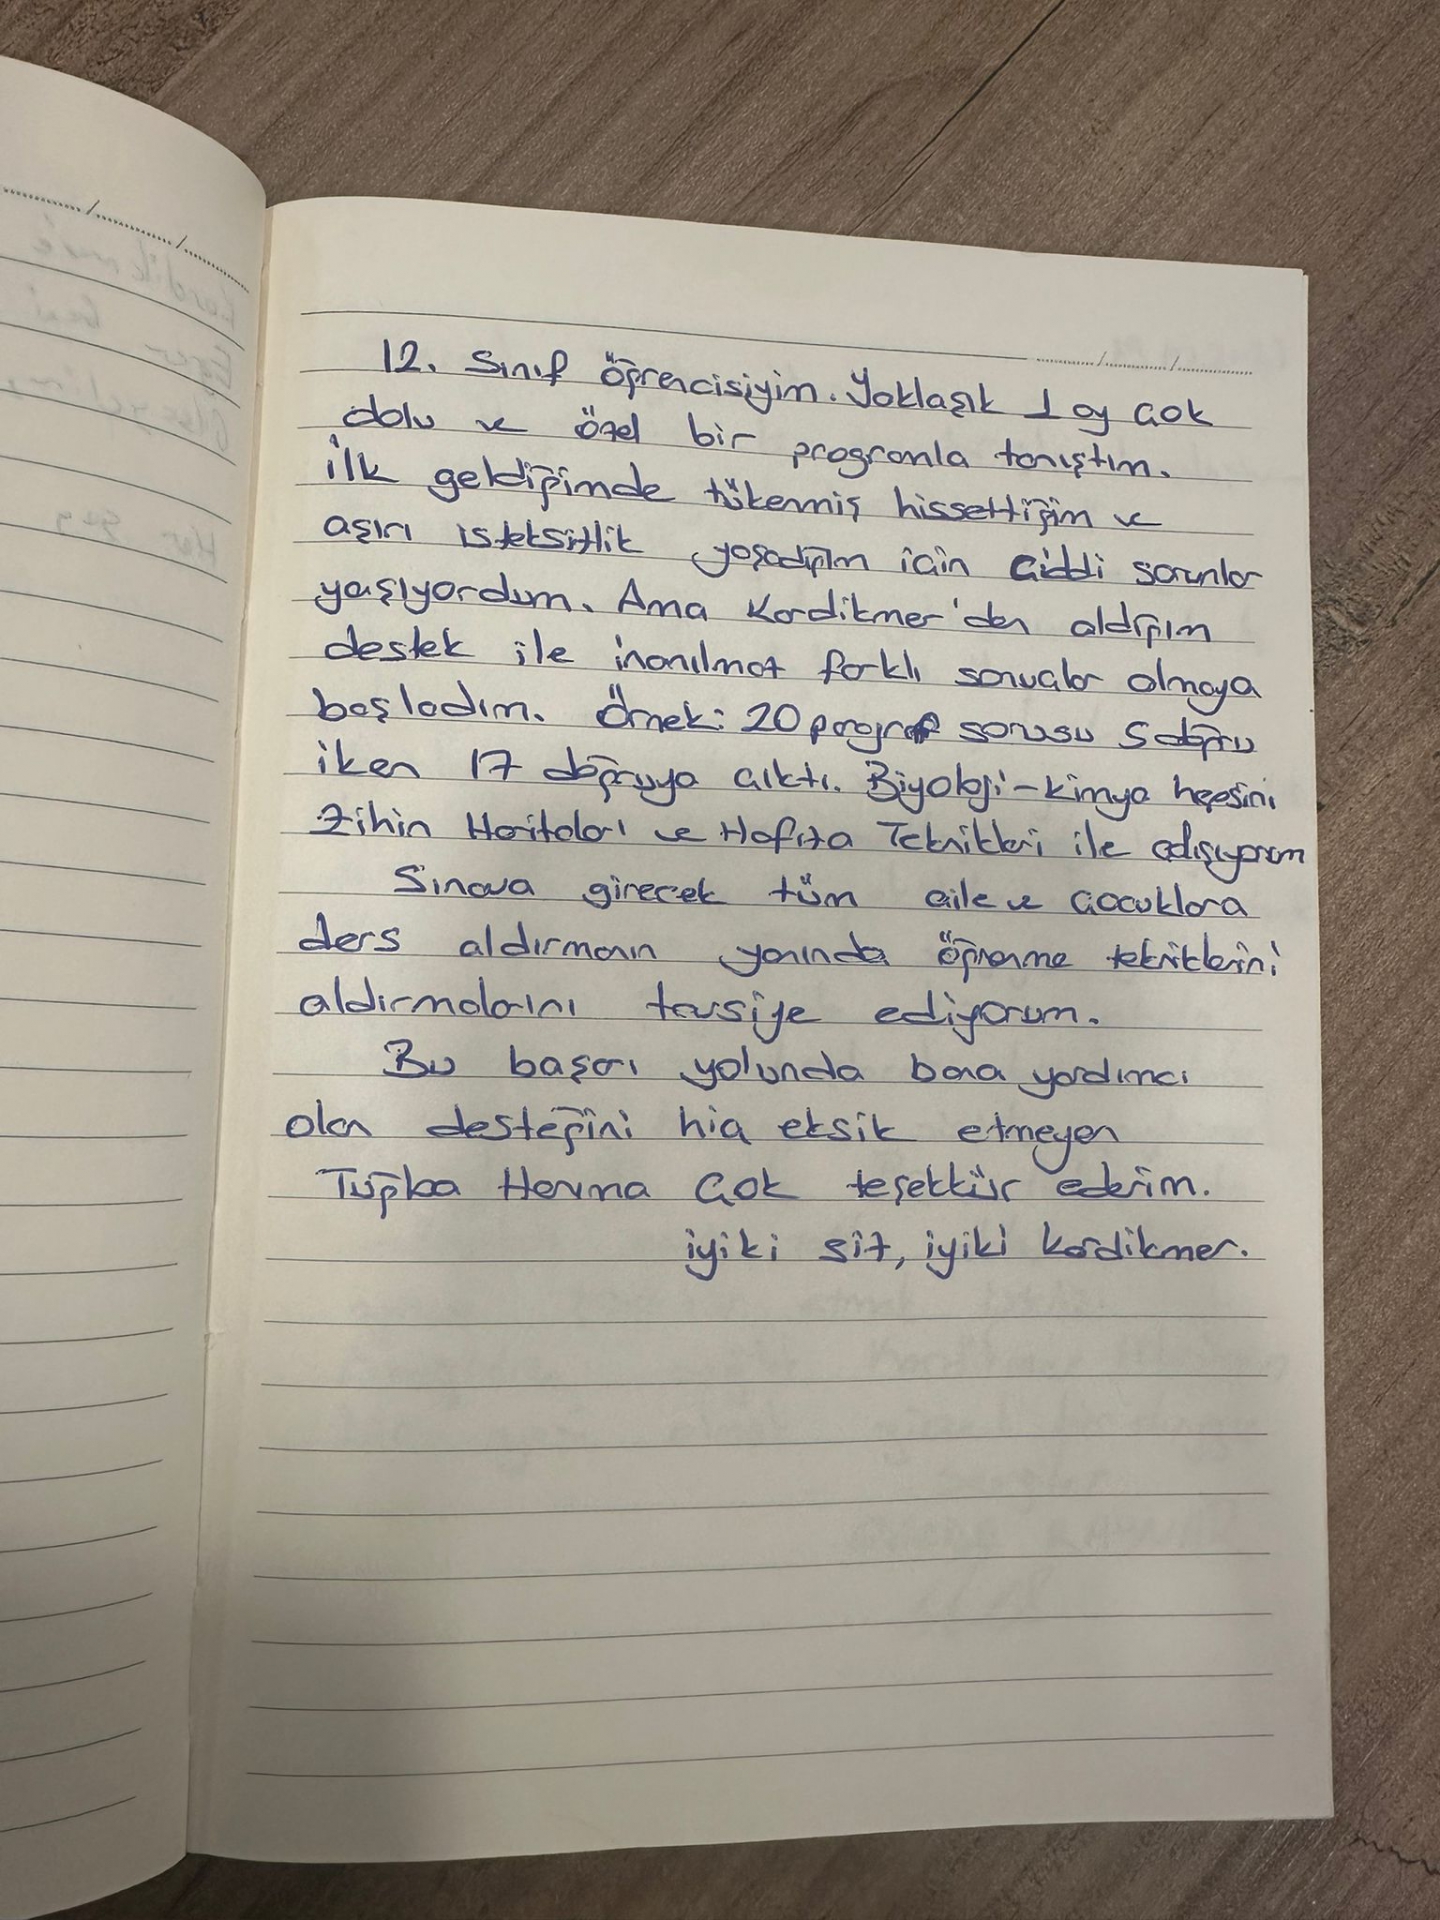 12. Sınıf öğrencisiyim. Yaklaşık 1 ay çok
dolu ve özel bir programla tanıştım.
İlk geldiğimde tükenmiş hissettiğim ve
aşırı isteksizlik yaşadığım için ciddi sorunlar
yaşıyordum. Ama Kordikmer'den aldığım
destek ile inanılmaz farklı sonuçlar almaya
başladım. Örnek: 20 paragraf sorusu 5 doğru
iken 17 doğruya çıktı. Biyoloji-kimya hepsini
Zihin Haritaları ve Hafıza Teknikleri ile çalışıyorum
Sınava girecek tüm aile ve çocuklara
ders aldırmanın yanında öğrenme tekniklerini
aldırmalarını tavsiye ediyorum.
Bu başarı yolunda bana yardımcı
olan desteğini hiç eksik etmeyen
Tuğba Hanıma çok teşekkür ederim.
iyiki siz, iyiki kordikmer.